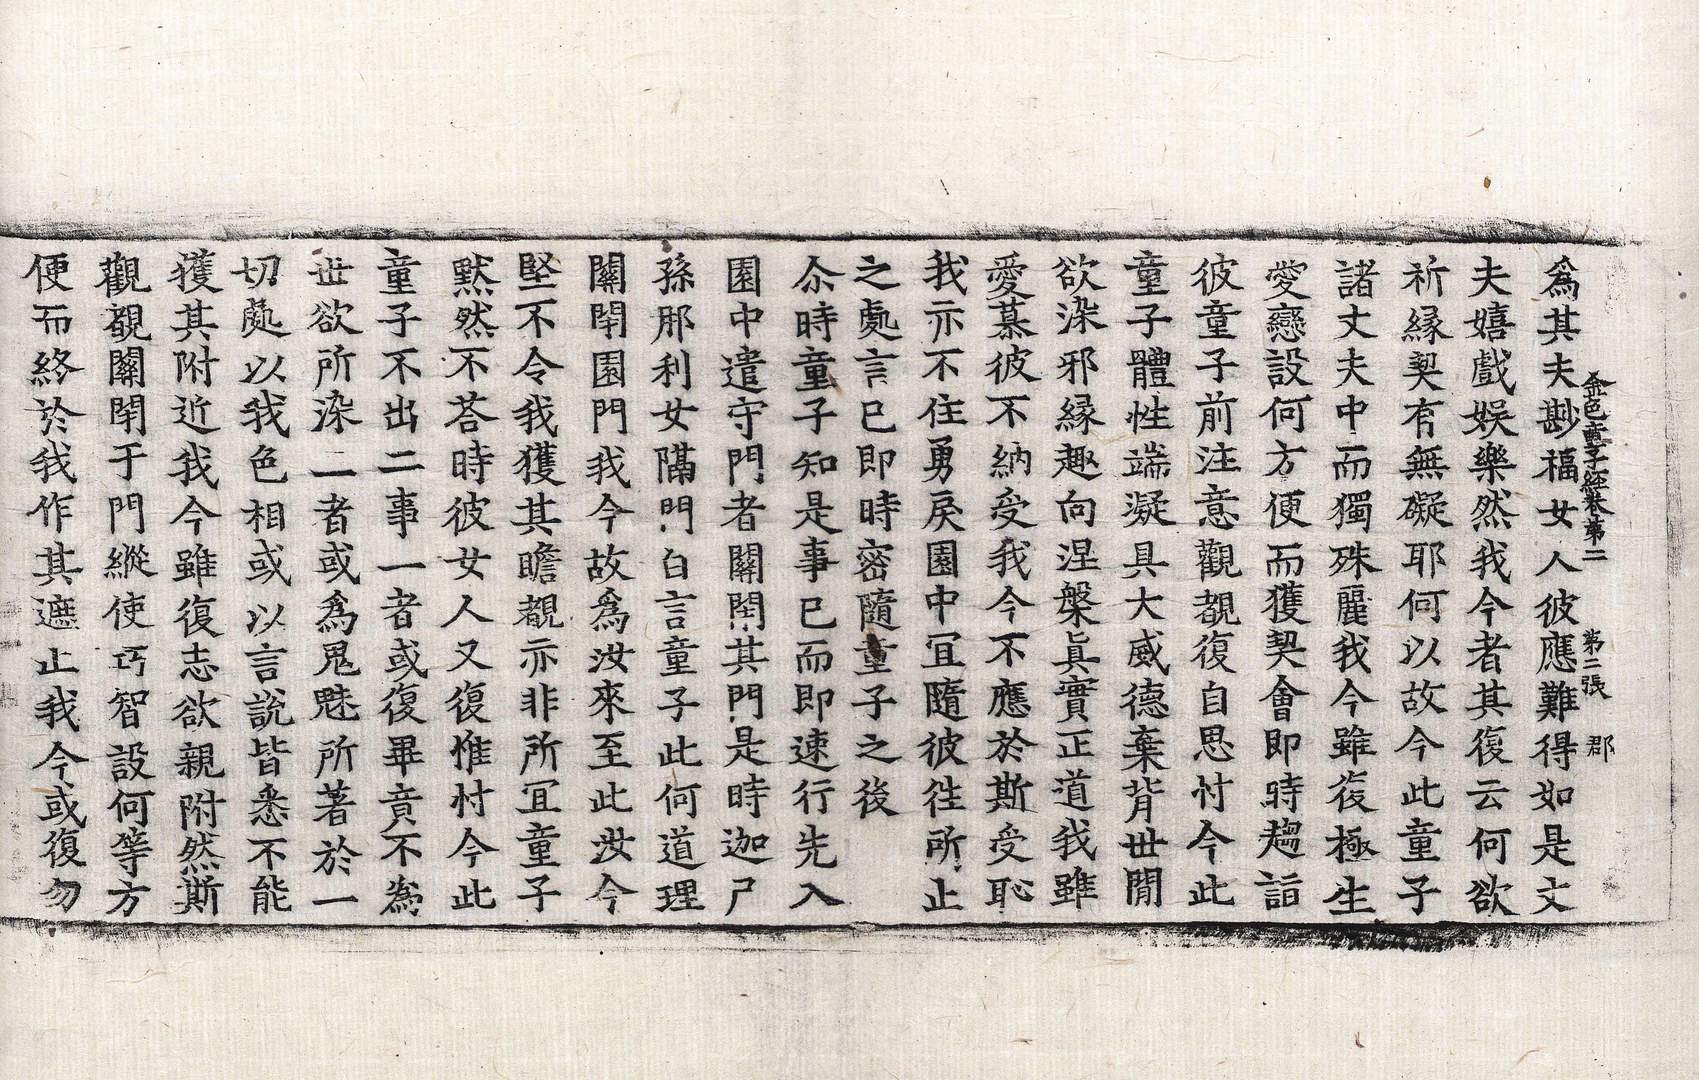 金色童子經卷第二 第二張 郡
為其夫尠福女人彼應難得如是丈
夫嬉戲娛樂然我今者其復云何欲
祈縁契有無礙耶何以故今此童子
諸丈夫中而獨殊麗我今雖復極生
愛戀設何方便而獲契會即時趨詣
彼童子前注意觀覩復自思忖今此
童子體性端凝具大威德棄背世間
欲染邪縁趣向涅槃真實正道我雖
愛慕彼不納受我今不應於斯受恥
我亦不住勇戾園中冝隨彼徃所止
之處言已即時密隨童子之後
尒時童子知是事已而即速行先入
園中遣守門者關閇其門是時迦尸
孫那利女隔門白言童子此何道理
關閇園門我今故為汝來至此汝今
堅不令我獲其瞻覩亦非所冝童子
默然不荅時彼女人又復惟忖今此
童子不出二事一者或復畢竟不為
世欲所染二者或為鬼魅所著於一
切處以我色相或以言說皆悉不能
獲其附近我今雖復志欲親附然斯
觀覩關閇于門縱使巧智設何等方
便而終於我作其遮止我今或復勿